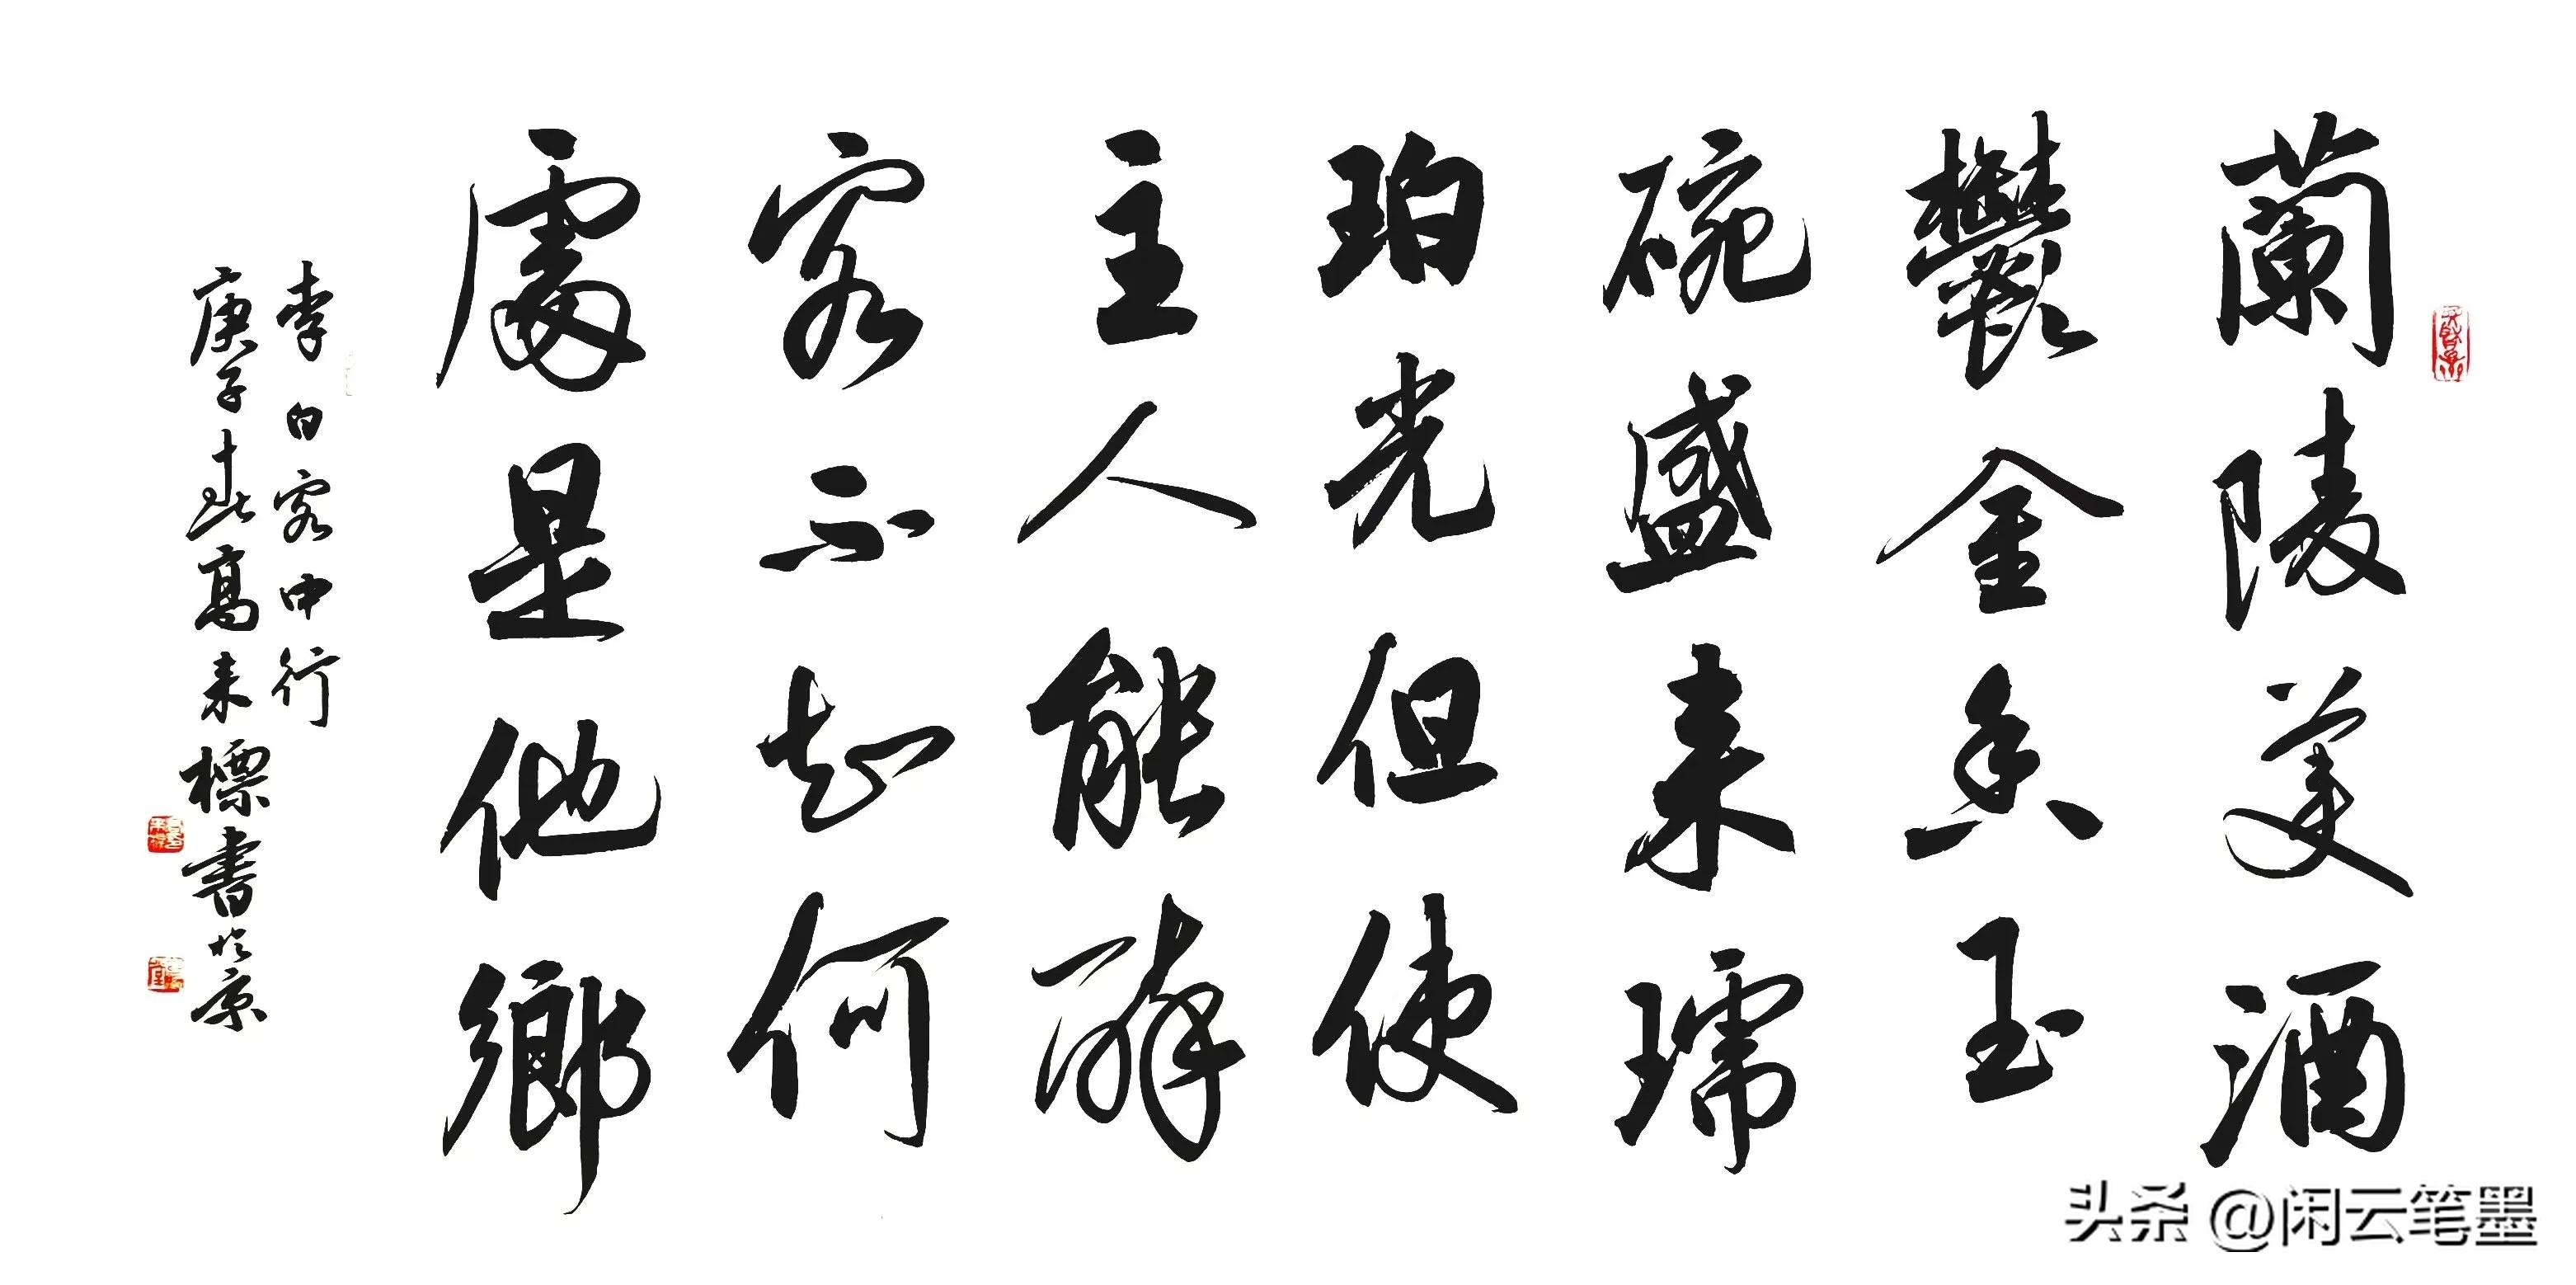 蘭陵美酒
鬱金香玉
碗盛来琥
珀光但使
主人能醉
客不知何
處是他鄉
李白客中行
庚子春高来標書於京
头条 @闲云笔墨